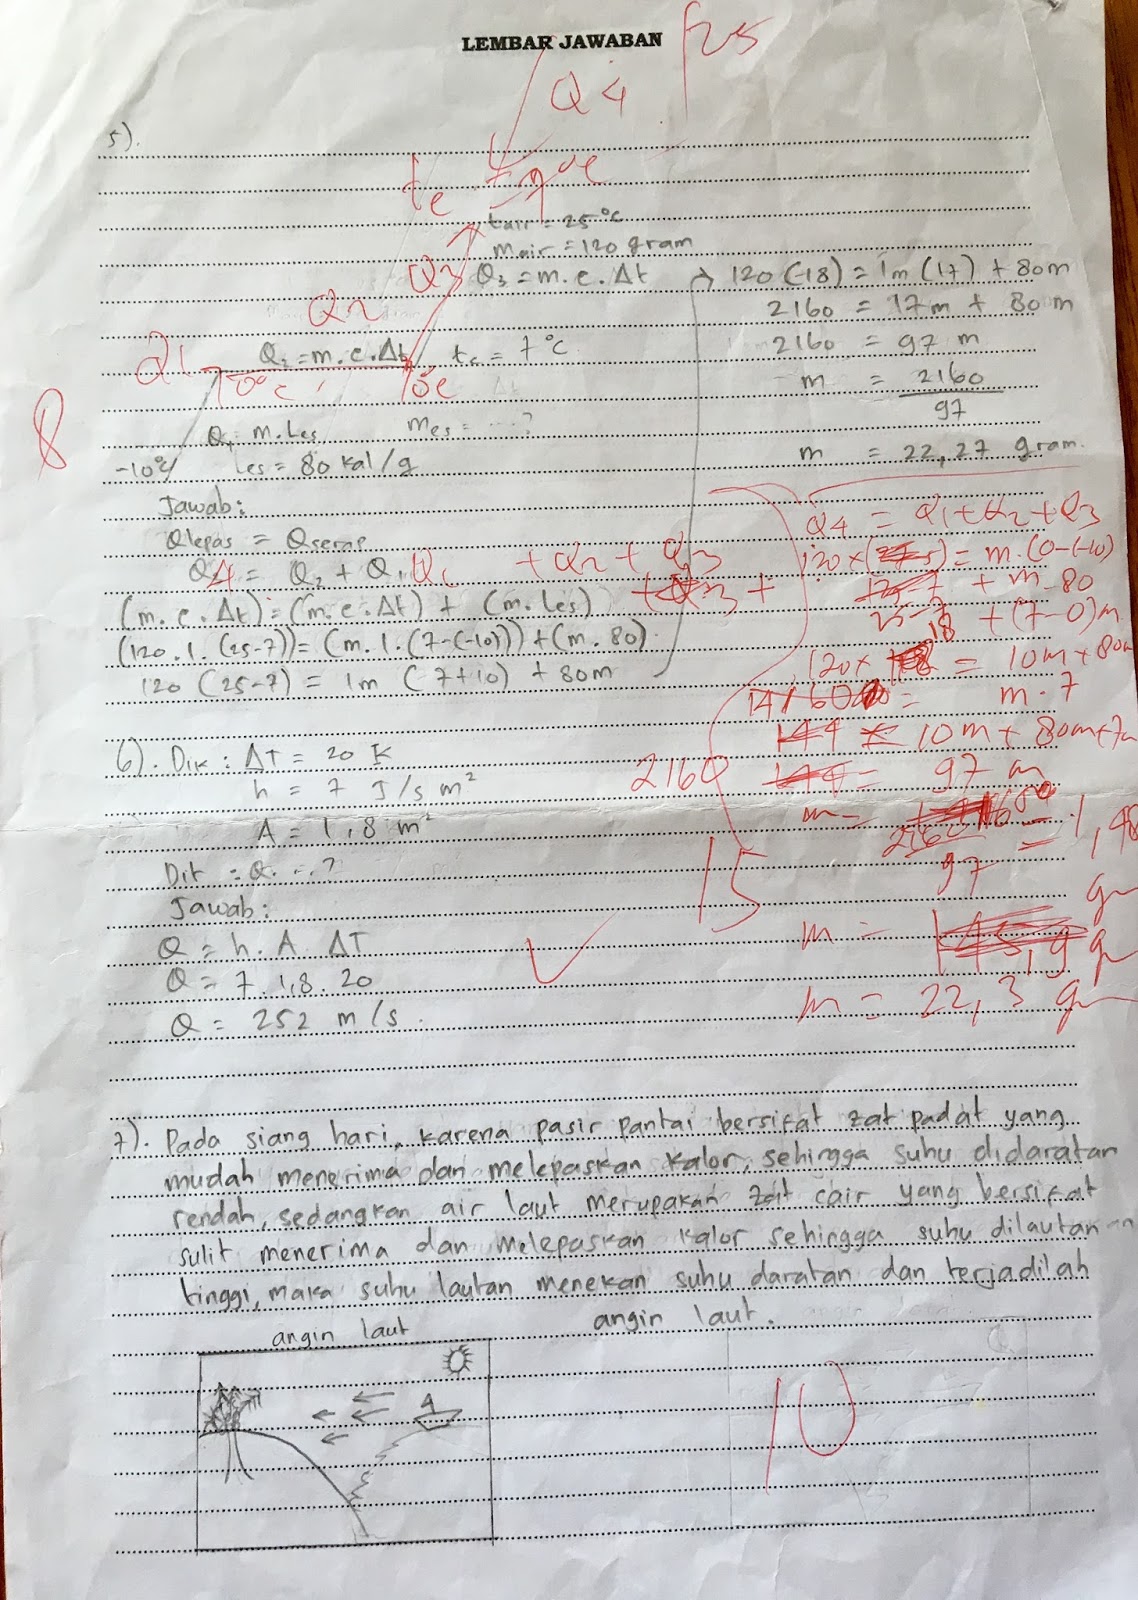 LEMBAR JAWABAN
25
Q4
5).
te = 7°c
tair = 25°c
mair = 120 gram
Q3
Q3 = m.c.Δt
→ 120 (18) = 1m (17) + 80m
Q2
2160 = 17m + 80m
Q1
Q2 = m.c.Δt
tc = 7°C
2160 = 97 m
0°c
0°c
m = 2160
97
8
Q1 = m.Les
mes = ....?
-10°c
Les = 80 kal/g
m = 22,27 gram.
Jawab:
Q4 = Q1+Q2+Q3
Qlepas = Qserap
Q4 = Q2 + Q1
Q1 + Q2 + Q3
120 x (25-7) = m.(0-(-10)) + m.80 + (7-0)m
(m.c.Δt) = (m.c.Δt) + (m.Les)
(120.1.(25-7)) = (m.1.(7-(-10))) + (m.80)
120 (25-7) = 1m (7+10) + 80m
120 x 18 = 10m + 80m
m.7
10m + 80m + 7m
2160 = 97 m
m = 2160
97
= 1,48
gr
m = 22,3 gr
15
6). Dik : ΔT = 20 K
h = 7 J/s m²
A = 1,8 m²
Dit : Q...?
Jawab:
Q = h. A. ΔT
Q = 7. 1,8. 20
Q = 252 m/s.
7). Pada siang hari, karena pasir pantai bersifat zat padat yang
mudah menerima dan melepaskan kalor, sehingga suhu didaratan
rendah, sedangkan air laut merupakan zat cair yang bersifat
sulit menerima dan melepaskan kalor sehingga suhu dilautan
tinggi, maka suhu lautan menekan suhu daratan dan terjadilah
angin laut.
angin laut
10